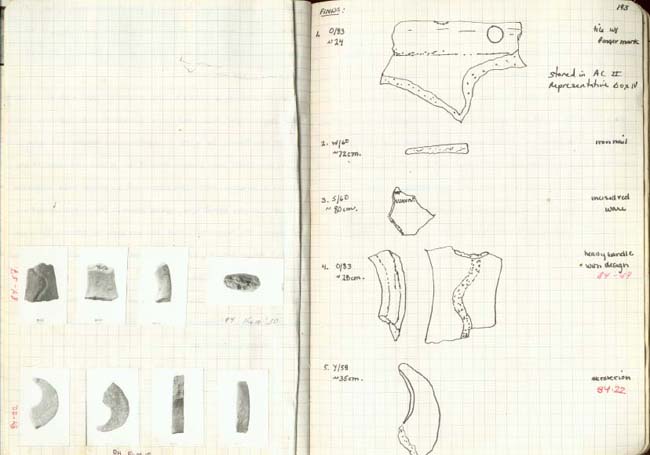 84-59
84
84-22
FINDS:
193
1. O/83
~24
tile w/
finger mark
stored in AC II
Representative Box IV
2. W/60
~72cm.
iron nail
3. S/60
~80cm.
incised red
ware
4. O/83
~28cm.
heavy handle
w/
design
84-59
5. Y/58
~35cm.
84-22